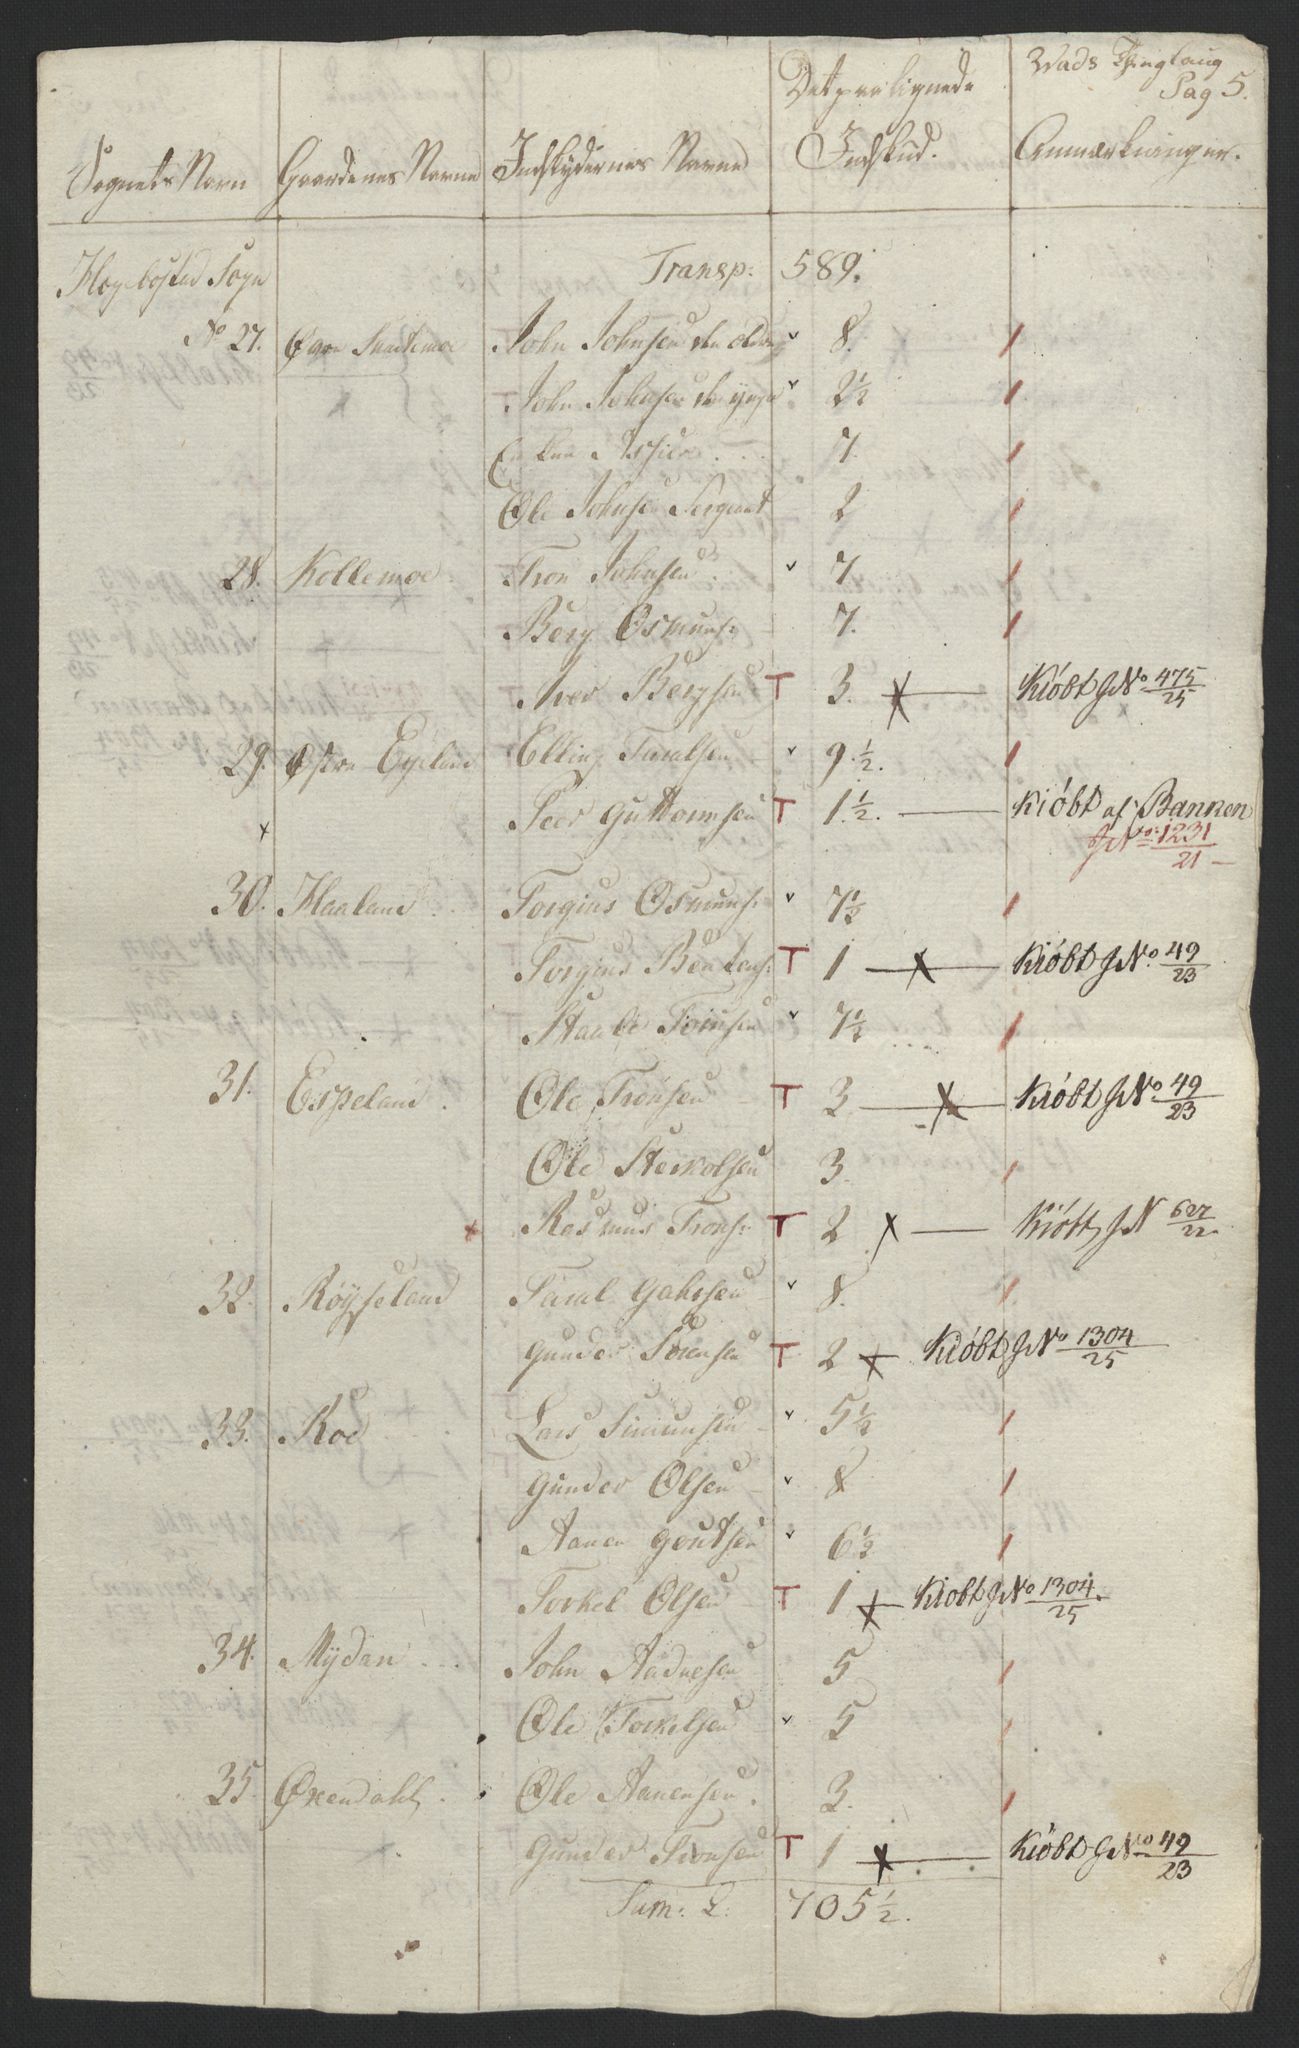 Wads Thinglaug
Pag 5.
Sognets Navn Gaardenes Navne Indskydernes Navne Det paalignede Indskud. Anmærkninger.
Hegebosted Sogn Transp: 589.
No 27. Øvre Snartemoe John Johnsen den ældre 8.
John Johnsen den yngre 2 1/2
Enken 7.
Ole Johnsen Sergeant 2
28. Kollemoe Tron Johnsen 7
Berg Osmuns: 7.
Iver Bergsen T 3. Kiöbt J No 475/25
29. Østre Eyeland Elling Taralsen 9 1/2.
Peer Guttormsen T 1 1/2. Kiöbt af Banken
J No: 1231/21
30. Haaland Torgius Osmuns: 7 1/2
Torgius Bentens: T 1 Kiöbt J No. 49/23
Staale Tomsen 7 1/2
31. Espeland Ole Tronsen T 3 Kiöbt J No 49/23
Ole Sterkolsen 3.
Rasmus Trons: T 2 Kiöbt J N 627/22.
32. Röyseland Taral Gahrsen 8.
Gunder Törensen T 2 Kiöbt J No 1304/25
33. Roe Lars Simunsen 5 1/2
Gunder Olsen 8
Aanen Goutsen 6 1/2
Torkel Olsen T 1 Kiobt J No 1304/25.
34. Mydan John Aadnesen 5
Ole Torkelsen 5
35. Øxendahl Ole Aanensen. 3.
Gunder Tronsen T 1 Kiöbt J No 49/23
Sum: L: 705 1/2.